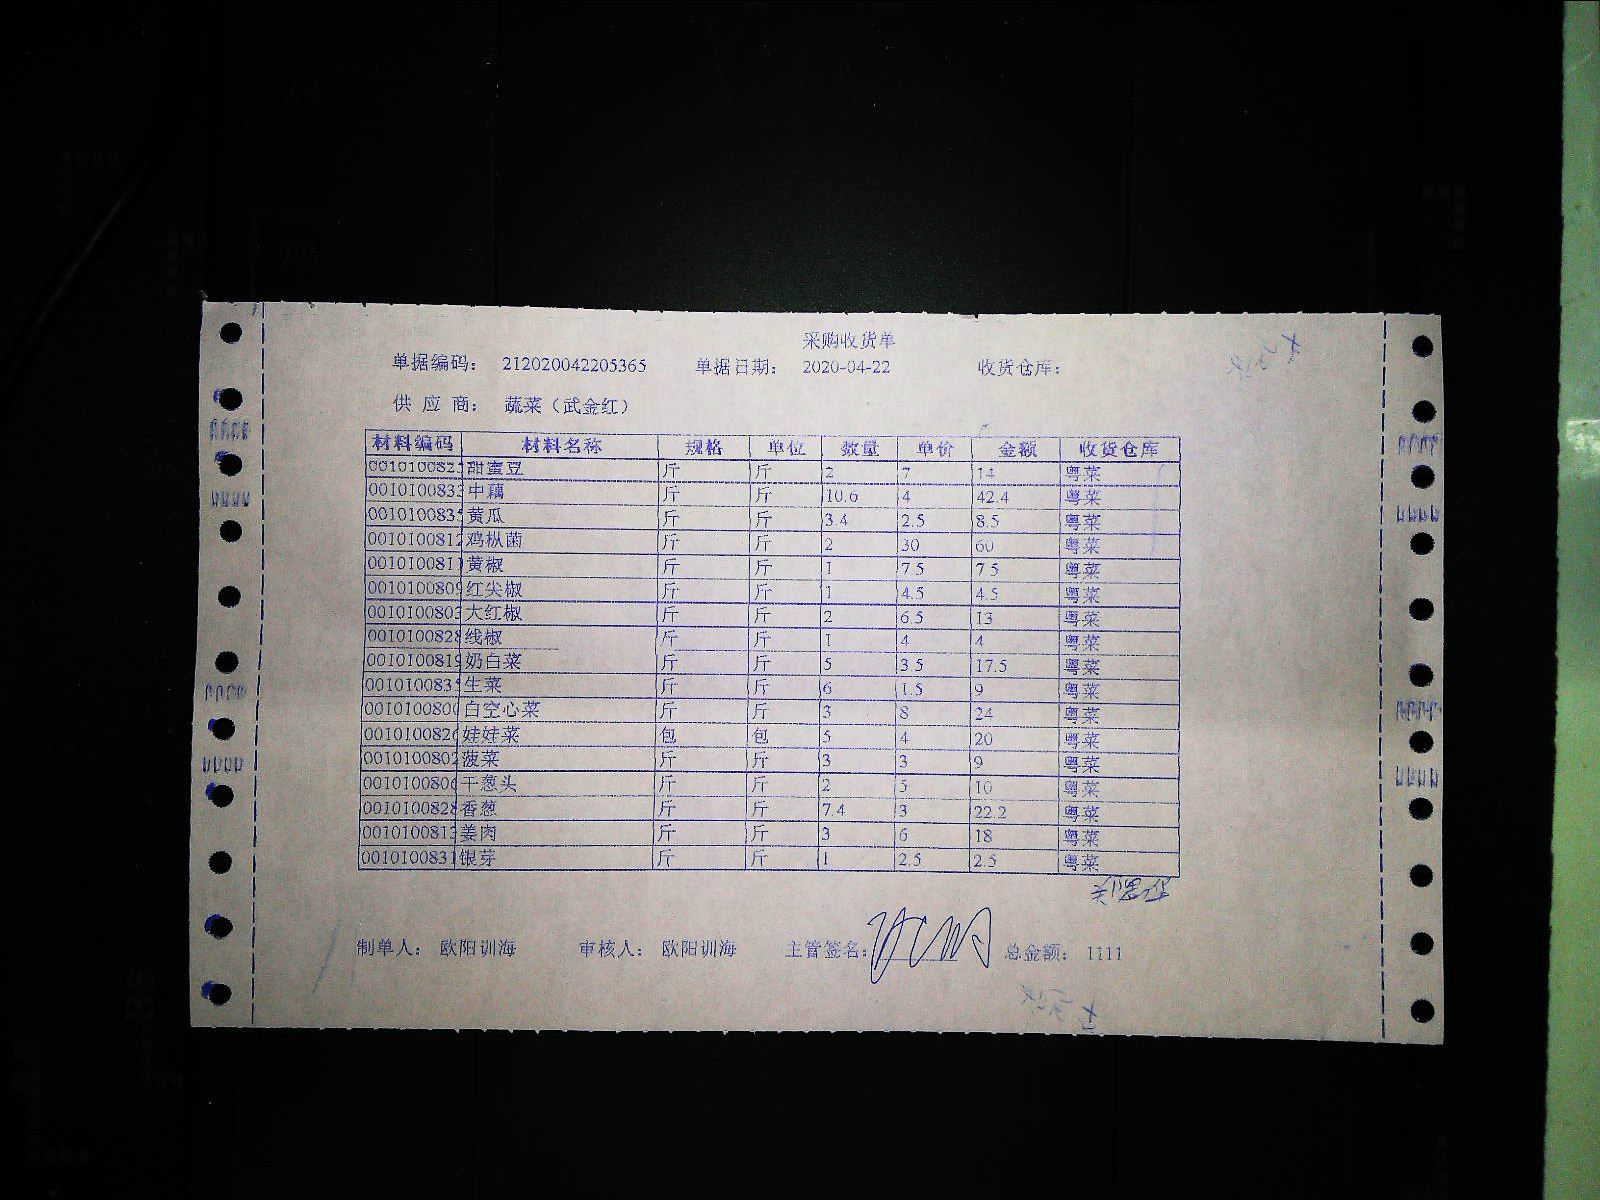 采购收货单
单据编码： 212020042205365 单据日期： 2020-04-22 收货仓库：
供 应 商： 蔬菜（武金红）
材料编码 材料名称 规格 单位 数量 单价 金额 收货仓库
001010082 甜蜜豆 斤 斤 2 7 14 粤菜
001010083 中藕 斤 斤 10.6 4 42.4 粤菜
001010083 黄瓜 斤 斤 3.4 2.5 8.5 粤菜
0010100812 鸡枞菌 斤 斤 2 30 60 粤菜
001010081 黄椒 斤 斤 1 7.5 7.5 粤菜
0010100809 红尖椒 斤 斤 1 4.5 4.5 粤菜
0010100803 大红椒 斤 斤 2 6.5 13 粤菜
0010100828 线椒 斤 斤 1 4 4 粤菜
0010100819 奶白菜 斤 斤 5 3.5 17.5 粤菜
001010083 生菜 斤 斤 6 1.5 9 粤菜
001010080 白空心菜 斤 斤 3 8 24 粤菜
0010100826 娃娃菜 包 包 5 4 20 粤菜
0010100802 菠菜 斤 斤 3 3 9 粤菜
0010100806 干葱头 斤 斤 2 5 10 粤菜
0010100828 香葱 斤 斤 7.4 3 22.2 粤菜
0010100813 姜肉 斤 斤 3 6 18 粤菜
0010100831 银芽 斤 斤 1 2.5 2.5 粤菜
制单人： 欧阳训海 审核人： 欧阳训海 主管签名： 总金额： 1111